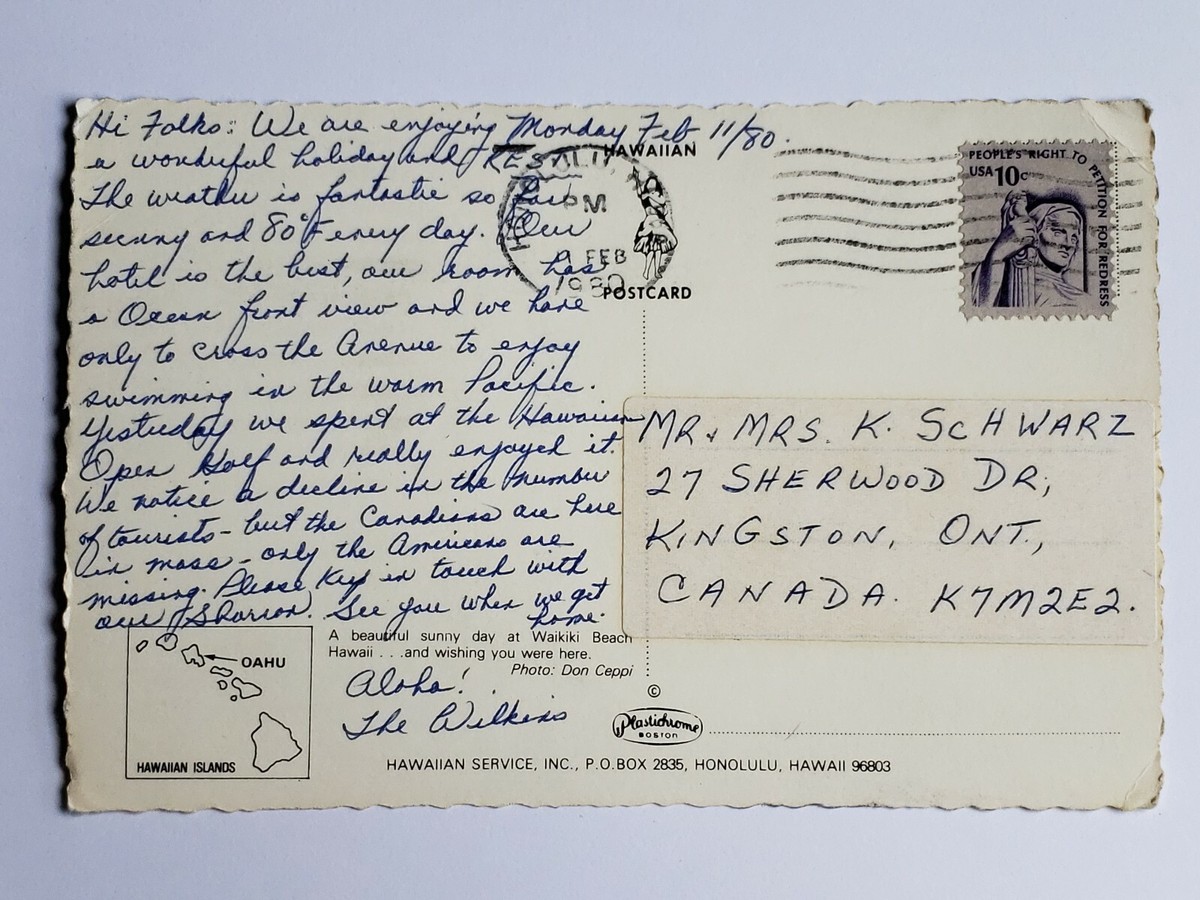 Monday Feb 11/80.
Hi Folks: We are enjoying
a wonderful holiday and REST.
The weather is fantastic so far
sunny and 80°F every day. Our
hotel is the best, our room has
a Ocean front view and we have
only to cross the Avenue to enjoy
swimming in the warm Pacific.
Yesterday we spent at the Hawaiian
Open Golf and really enjoyed it.
We notice a decline in the number
of tourists - but the Canadians are here
in mass - only the Americans are
missing. Please Keep in touch with
our Sharron. See you when we get
home.
Aloha!
The Wilkins
HAWAIIAN
POSTCARD
PM
FEB
1980
PEOPLE'S RIGHT TO PETITION FOR REDRESS
USA 10c
MR & MRS. K. SCHWARZ
27 SHERWOOD DR,
KINGSTON, ONT.,
CANADA. K7M2E2.
OAHU
HAWAIIAN ISLANDS
A beautiful sunny day at Waikiki Beach
Hawaii . . .and wishing you were here.
Photo: Don Ceppi
©
Plastichrome
BOSTON
HAWAIIAN SERVICE, INC., P.O.BOX 2835, HONOLULU, HAWAII 96803